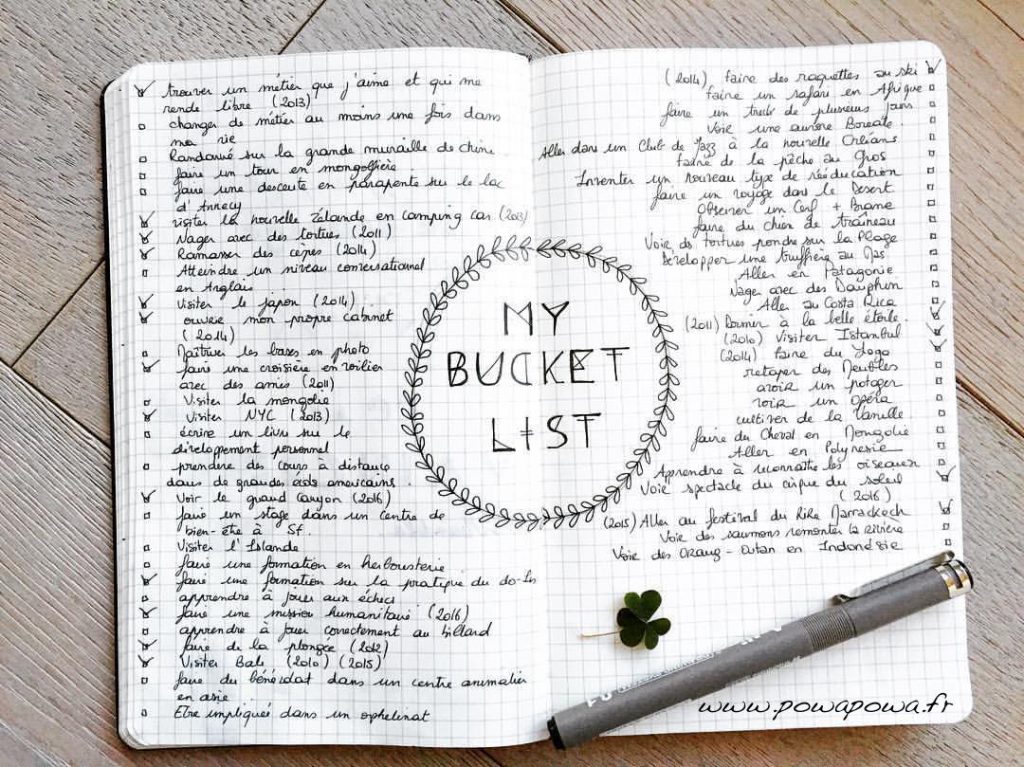 trouver un métier que j'aime et qui me
rende libre (2013)
changer de métier au moins une fois dans
ma vie
Randonné sur la grande muraille de chine
faire un tour en mongolfière
faire une descente en parapente sur le lac
d'Annecy
visiter la nouvelle Zélande en camping car (2013)
Nager avec des tortues (2011)
Ramasser des cèpes (2014)
Atteindre un niveau conversationnel
en Anglais
Visiter le japon (2014)
ouvrir mon propre cabinet
(2014)
Maîtriser les bases en photo
faire une croisière en voilier
avec des amis (2011)
Visiter la mongolie
Visiter NYC (2013)
écrire un livre sur le
développement personnel
prendre des cours à distance
dans de grandes américains.
Voir le grand Canyon (2016)
faire un stage dans un centre de
bien-être à SF.
Visiter l'Islande
faire une formation en herboristerie
faire une formation sur la pratique du do-In
apprendre à jouer aux échecs
faire une mission humanitaire (2016)
apprendre à jouer correctement au billard
faire de la plongée (2012)
Visiter Bali (2010) (2015)
faire du bénévolat dans un centre animalier
en asie
Etre impliquée dans un orphelinat
MY
BUCKET
LIST
(2014) faire des raquettes au ski
faire un safari en Afrique
faire un trek de plusieurs jours
Voir une aurore Boréale.
Aller dans un Club de Jazz à la nouvelle Orléans
faire de la pêche au Gros
Inventer un nouveau type de rééducation
faire un voyage dans le Désert
Observer un Cerf + Brame
faire du chien de traîneau
Voir des tortues pondre sur la Plage
Développer une truffière au Mas
Aller en Patagonie
Nager avec des Dauphin
Aller au Costa Rica
(2011) Dormir à la belle étoile.
(2010) Visiter Istanbul
(2014) faire du
retaper des Meubles
avoir un potager
voir un opéra
cultiver de la Vanille.
faire du Cheval en Mongolie
Aller en Polynésie
Apprendre à reconnaître les oiseaux
Voir spectacle du cirque du soleil
(2016)
(2015) Aller au festival du Rire Marrackech
Voir des saumons remonter la rivière
Voir des Orang-Outan en Indonésie
www.powapowa.fr